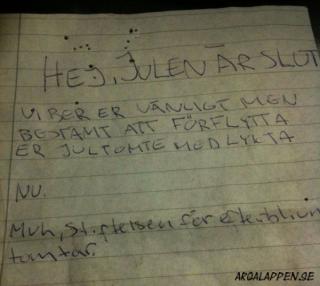 HEJ, JULEN ÄR SLUT
VI BER ER VÄNLIGT MEN
BESTÄMT ATT FÖRFLYTTA
ER JULTOMTE MED LYKTA
NU.
Mvh, Stiftelsen för
tomtar.
ARGALAPPEN.SE